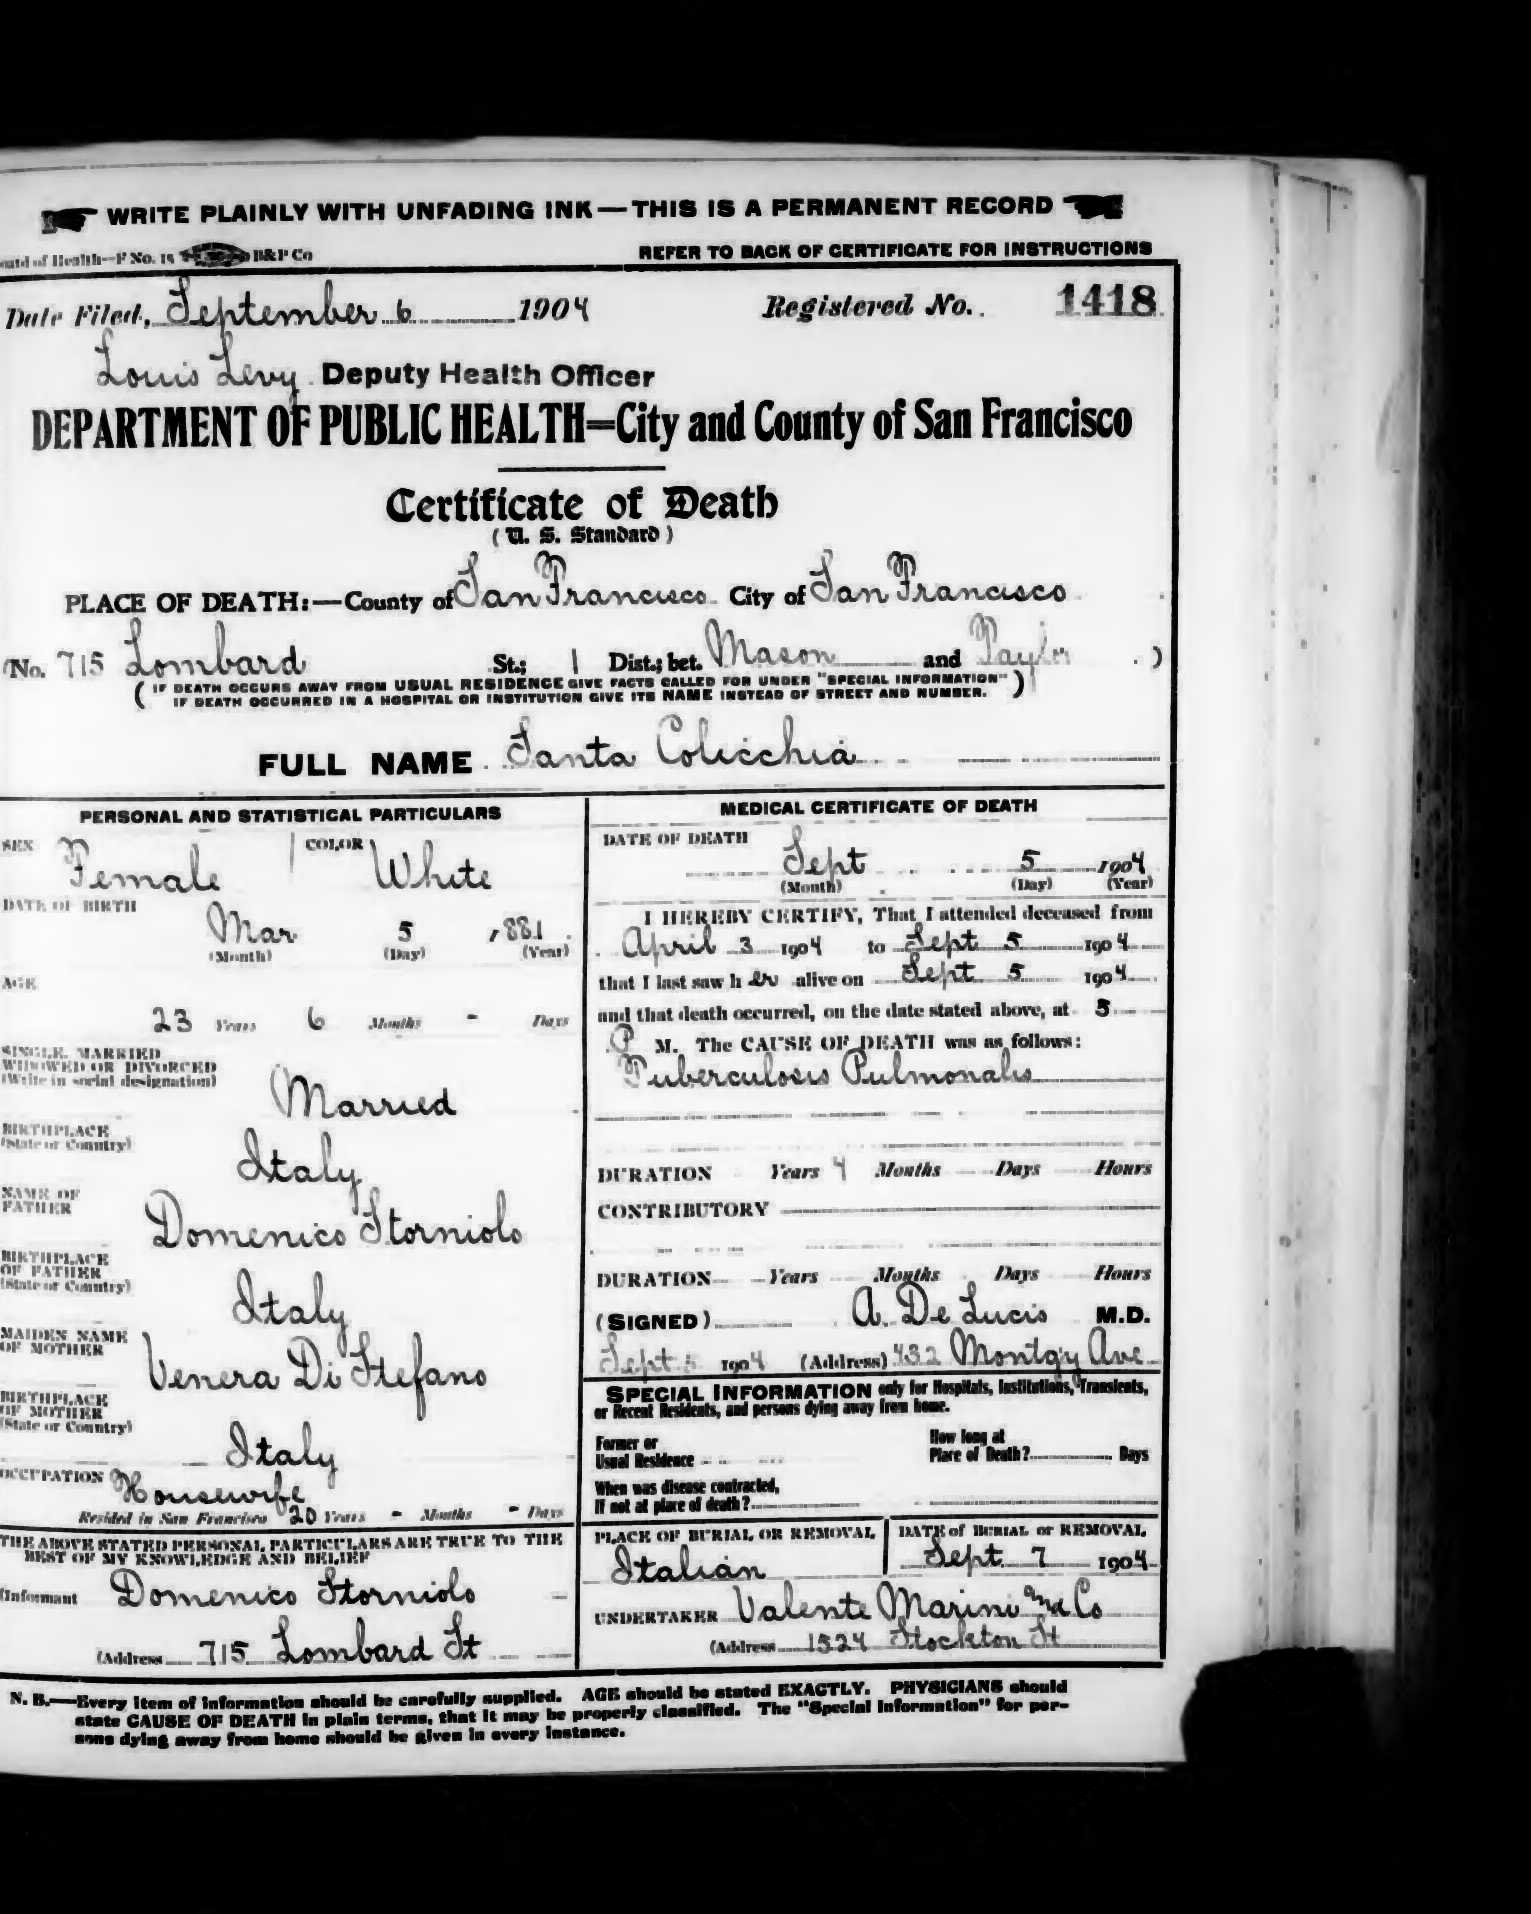 WRITE PLAINLY WITH UNFADING INK—THIS IS A PERMANENT RECORD
of Health—F No. 15 B&P Co REFER TO BACK OF CERTIFICATE FOR INSTRUCTIONS
Date Filed, September 6 1904 Registered No. 1418
Louis Levy Deputy Health Officer
DEPARTMENT OF PUBLIC HEALTH=City and County of San Francisco
Certificate of Death
(U. S. Standard)
PLACE OF DEATH:—County of San Francisco City of San Francisco
(No. 715 Lombard St.; 1 Dist.; bet. Mason and Taylor )
( IF DEATH OCCURS AWAY FROM USUAL RESIDENCE GIVE FACTS CALLED FOR UNDER "SPECIAL INFORMATION" )
IF DEATH OCCURRED IN A HOSPITAL OR INSTITUTION GIVE ITS NAME INSTEAD OF STREET AND NUMBER.
FULL NAME Santa Colicchia
PERSONAL AND STATISTICAL PARTICULARS
SEX Female COLOR White
DATE OF BIRTH
Mar 5 1881
(Month) (Day) (Year)
AGE
23 Years 6 Months - Days
SINGLE, MARRIED
WIDOWED OR DIVORCED
(Write in social designation)
Married
BIRTHPLACE
(State or Country)
Italy
NAME OF
FATHER
Domenico Storniolo
BIRTHPLACE
OF FATHER
(State or Country)
Italy
MAIDEN NAME
OF MOTHER
Venera Di Stefano
BIRTHPLACE
OF MOTHER
(State or Country)
Italy
OCCUPATION Housewife
Resided in San Francisco 20 Years - Months - Days
THE ABOVE STATED PERSONAL PARTICULARS ARE TRUE TO THE
BEST OF MY KNOWLEDGE AND BELIEF
(Informant Domenico Storniolo
(Address 715 Lombard St
MEDICAL CERTIFICATE OF DEATH
DATE OF DEATH
Sept 5 1904
(Month) (Day) (Year)
I HEREBY CERTIFY, That I attended deceased from
April 3 1904 to Sept 5 1904
that I last saw h er alive on Sept 5 1904
and that death occurred, on the date stated above, at 5
P M. The CAUSE OF DEATH was as follows:
Tuberculosis Pulmonalis
DURATION Years 4 Months Days Hours
CONTRIBUTORY
DURATION Years Months Days Hours
(SIGNED) A. De Lucis M.D.
Sept 5 1904 (Address) 432 Montgy Ave
SPECIAL INFORMATION only for Hospitals, Institutions, Transients,
or Recent Residents, and persons dying away from home.
Former or
Usual Residence
How long at
Place of Death? Days
When was disease contracted,
If not at place of death?
PLACE OF BURIAL OR REMOVAL
Italian
DATE of BURIAL or REMOVAL
Sept 7 1904
UNDERTAKER Valente Marini and Co
(Address 1524 Stockton St
N. B.—Every item of information should be carefully supplied. AGE should be stated EXACTLY. PHYSICIANS should
state CAUSE OF DEATH in plain terms, that it may be properly classified. The "Special Information" for per-
sons dying away from home should be given in every instance.